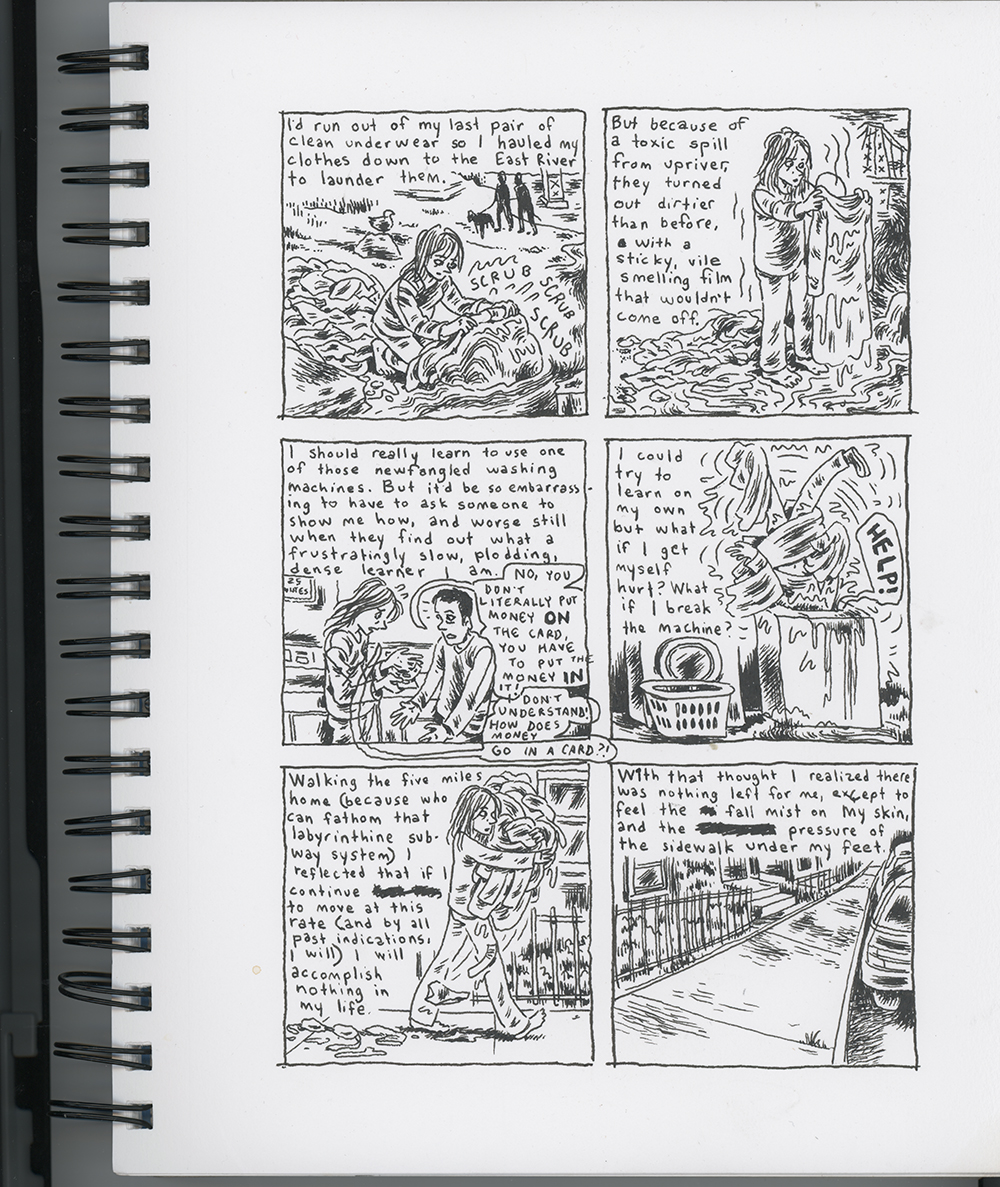 I'd run out of my last pair of
clean underwear so I hauled my
clothes down to the East River
to launder them.
SCRUB
SCRUB
SCRUB
But because of
a toxic spill
from upriver,
they turned
out dirtier
than before,
with a
sticky, vile
smelling film
that wouldn't
come off.
I should really learn to use one
of those newfangled washing
machines. But it'd be so embarrass-
ing to have to ask someone to
show me how, and worse still
when they find out what a
frustratingly slow, plodding,
dense learner I am.
25
NO, YOU
DON'T
LITERALLY PUT
MONEY ON
THE CARD,
YOU HAVE
TO PUT THE
MONEY IN
IT!
I DON'T
UNDERSTAND!
HOW DOES
MONEY
GO IN A CARD?!
I could
try to
learn on
my own
but what
if I get
myself
hurt? What
if I break
the machine?
HELP!
Walking the five miles
home (because who
can fathom that
labyrinthine sub-
way system) I
reflected that if I
continue
to move at this
rate (and by all
past indications,
I will) I will
accomplish
nothing in
my life.
With that thought I realized there
was nothing left for me, except to
feel the fall mist on my skin,
and the pressure of
the sidewalk under my feet.